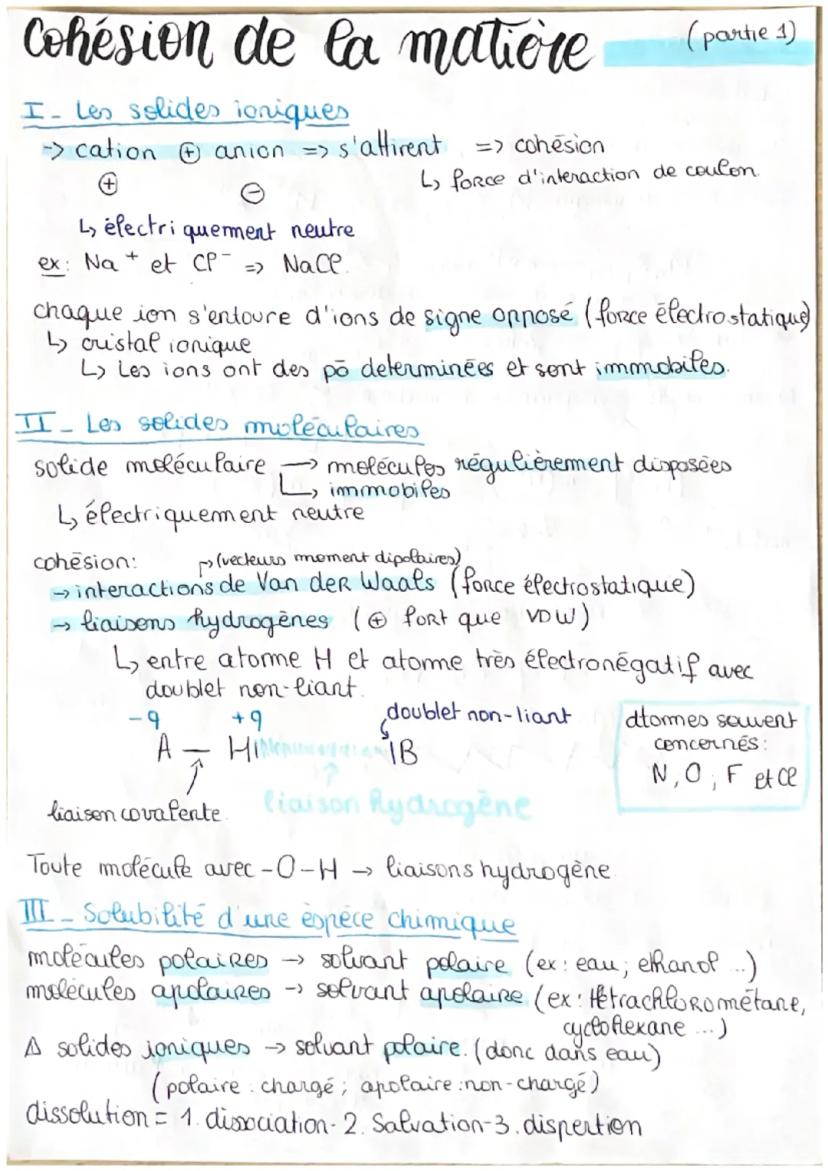 Cohésion de la matière (partie 1)
I - Les solides ioniques
-> cation ⊕ anion => s'attirent => cohésion
⊕ ⊖ ↳ force d'interaction de coulon
↳ électriquement neutre
ex: Na⁺ et Cl⁻ => NaCl.
chaque ion s'entoure d'ions de signe opposé (force électrostatique)
↳ cristal ionique
↳ Les ions ont des pō determinées et sont immobiles.
II - Les solides moléculaires
solide moléculaire → molécules régulièrement disposées
↳ immobiles
↳ électriquement neutre
cohésion: ↱ (vecteurs moment dipolaires)
→ interactions de Van der Waals (force électrostatique)
→ liaisons hydrogènes (⊕ fort que VDW)
↳ entre atome H et atome très électronégatif avec
doublet non-liant.
-q +q doublet non-liant
A — H IB
liaison covalente. liaison hydrogène
atomes souvent
concernés:
N, O, F et Cl
Toute molécule avec -O-H → liaisons hydrogène.
III - Solubilité d'une espèce chimique
molécules polaires → solvant polaire (ex: eau; éthanol ...)
molécules apolaires → solvant apolaire (ex: tétrachlorométane,
cyclohexane ...)
Δ solides ioniques → solvant polaire. (donc dans eau)
(polaire : chargé ; apolaire : non-chargé)
dissolution = 1. dissociation - 2. Salvation - 3. dispertion